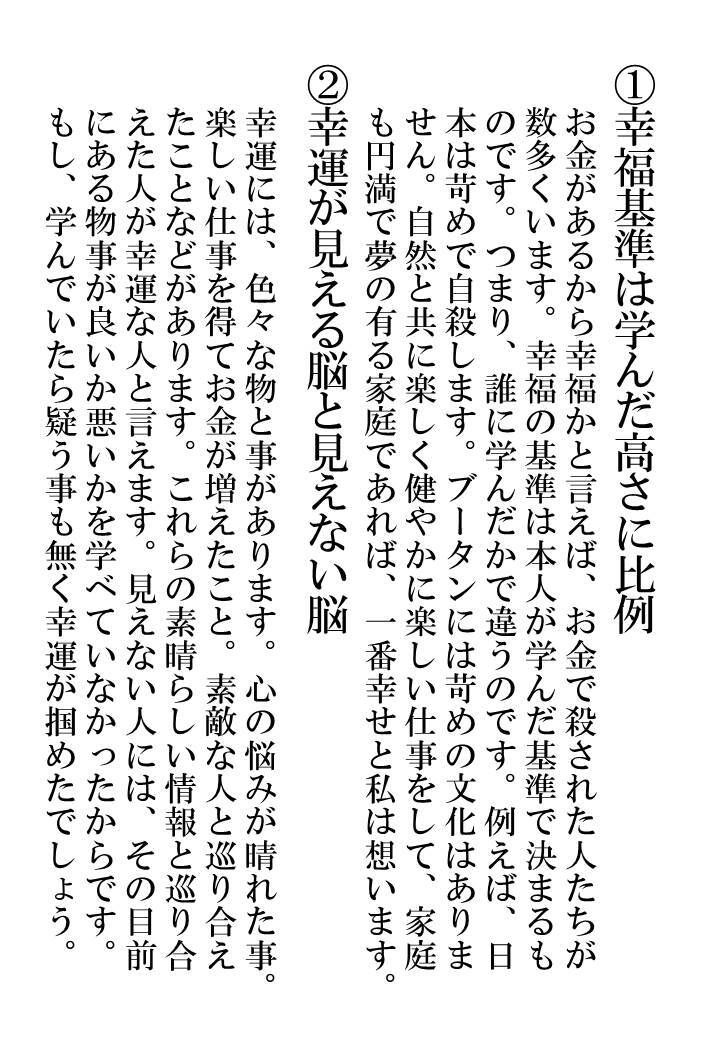 ①幸福基準は学んだ高さに比例
お金があるから幸福かと言えば、お金で殺された人たちが
数多くいます。幸福の基準は本人が学んだ基準で決まるも
のです。つまり、誰に学んだかで違うのです。例えば、日
本は苛めで自殺します。ブータンには苛めの文化はありま
せん。自然と共に楽しく健やかに楽しい仕事をして、家庭
も円満で夢の有る家庭であれば、一番幸せと私は想います。
②幸運が見える脳と見えない脳
幸運には、色々な物と事があります。心の悩みが晴れた事。
楽しい仕事を得てお金が増えたこと。素敵な人と巡り合え
たことなどがあります。これらの素晴らしい情報と巡り合
えた人が幸運な人と言えます。見えない人には、その目前
にある物事が良いか悪いかを学べていなかったからです。
もし、学んでいたら疑う事も無く幸運が掴めたでしょう。